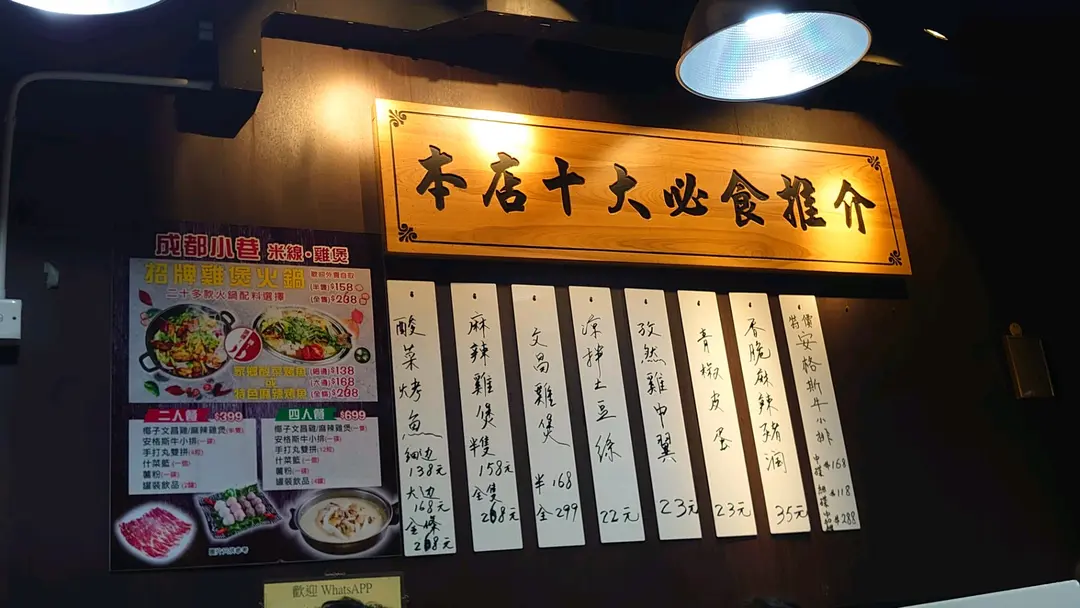 本店十大必食推介
成都小巷 米線·雞煲
招牌雞煲火鍋
歡迎外賣自取
二十多款火鍋配料選擇
(半隻) $158
(全隻) $268
家鄉酸菜烤魚
或
特色麻辣烤魚
(細邊) $138
(大邊) $168
(全條) $268
二人餐 $399
椰子文昌雞/麻辣雞煲(半隻)
安格斯牛小排(一碟)
手打丸雙拼
什菜籃(一個)
薯粉(一碟)
罐裝飲品(2罐)
四人餐 $699
椰子文昌雞/麻辣雞煲(一隻)
安格斯牛小排(一碟)
手打丸雙拼
什菜籃(一個)
薯粉(一碟)
罐裝飲品(4罐)
圖片只供參考
酸菜烤魚
細边
138元
大边
168元
全條
268元
麻辣雞煲
半隻
158元
全隻
268元
文昌雞煲
半168
全299
涼拌土豆絲
22元
孜然雞中翼
23元
青椒皮蛋
23元
香脆麻辣豬潤
35元
特價安格斯牛小排
$168
$118
$288
歡迎 WhatsAPP